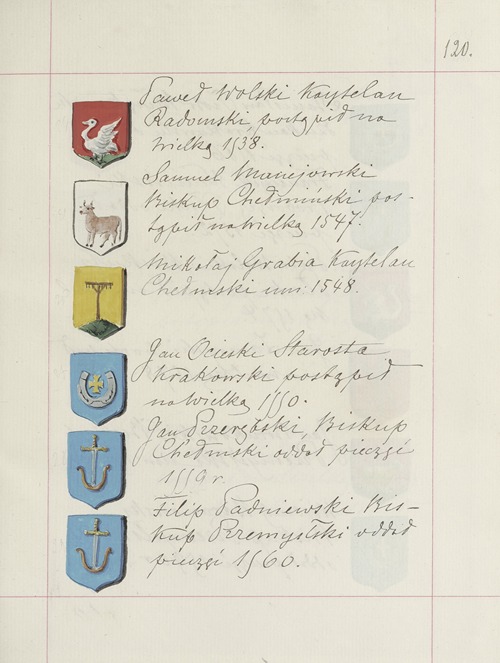 120.
Paweł Wolski Kasztelan
Radomski, postąpił na
wielką 1538.
Samuel Maciejowski
Biskup Chełmiński pos-
tąpił na wielką 1547.
Mikołaj Grabia Kasztelan
Chełmski um: 1548.
Jan Ocieski Starosta
Krakowski postąpił
na wielką 1550.
Jan Przerębski, Biskup
Chełmski oddał pieczęć
1559 r.
Filip Padniewski Bis-
kup Przemyslski oddał
pieczęć 1560.